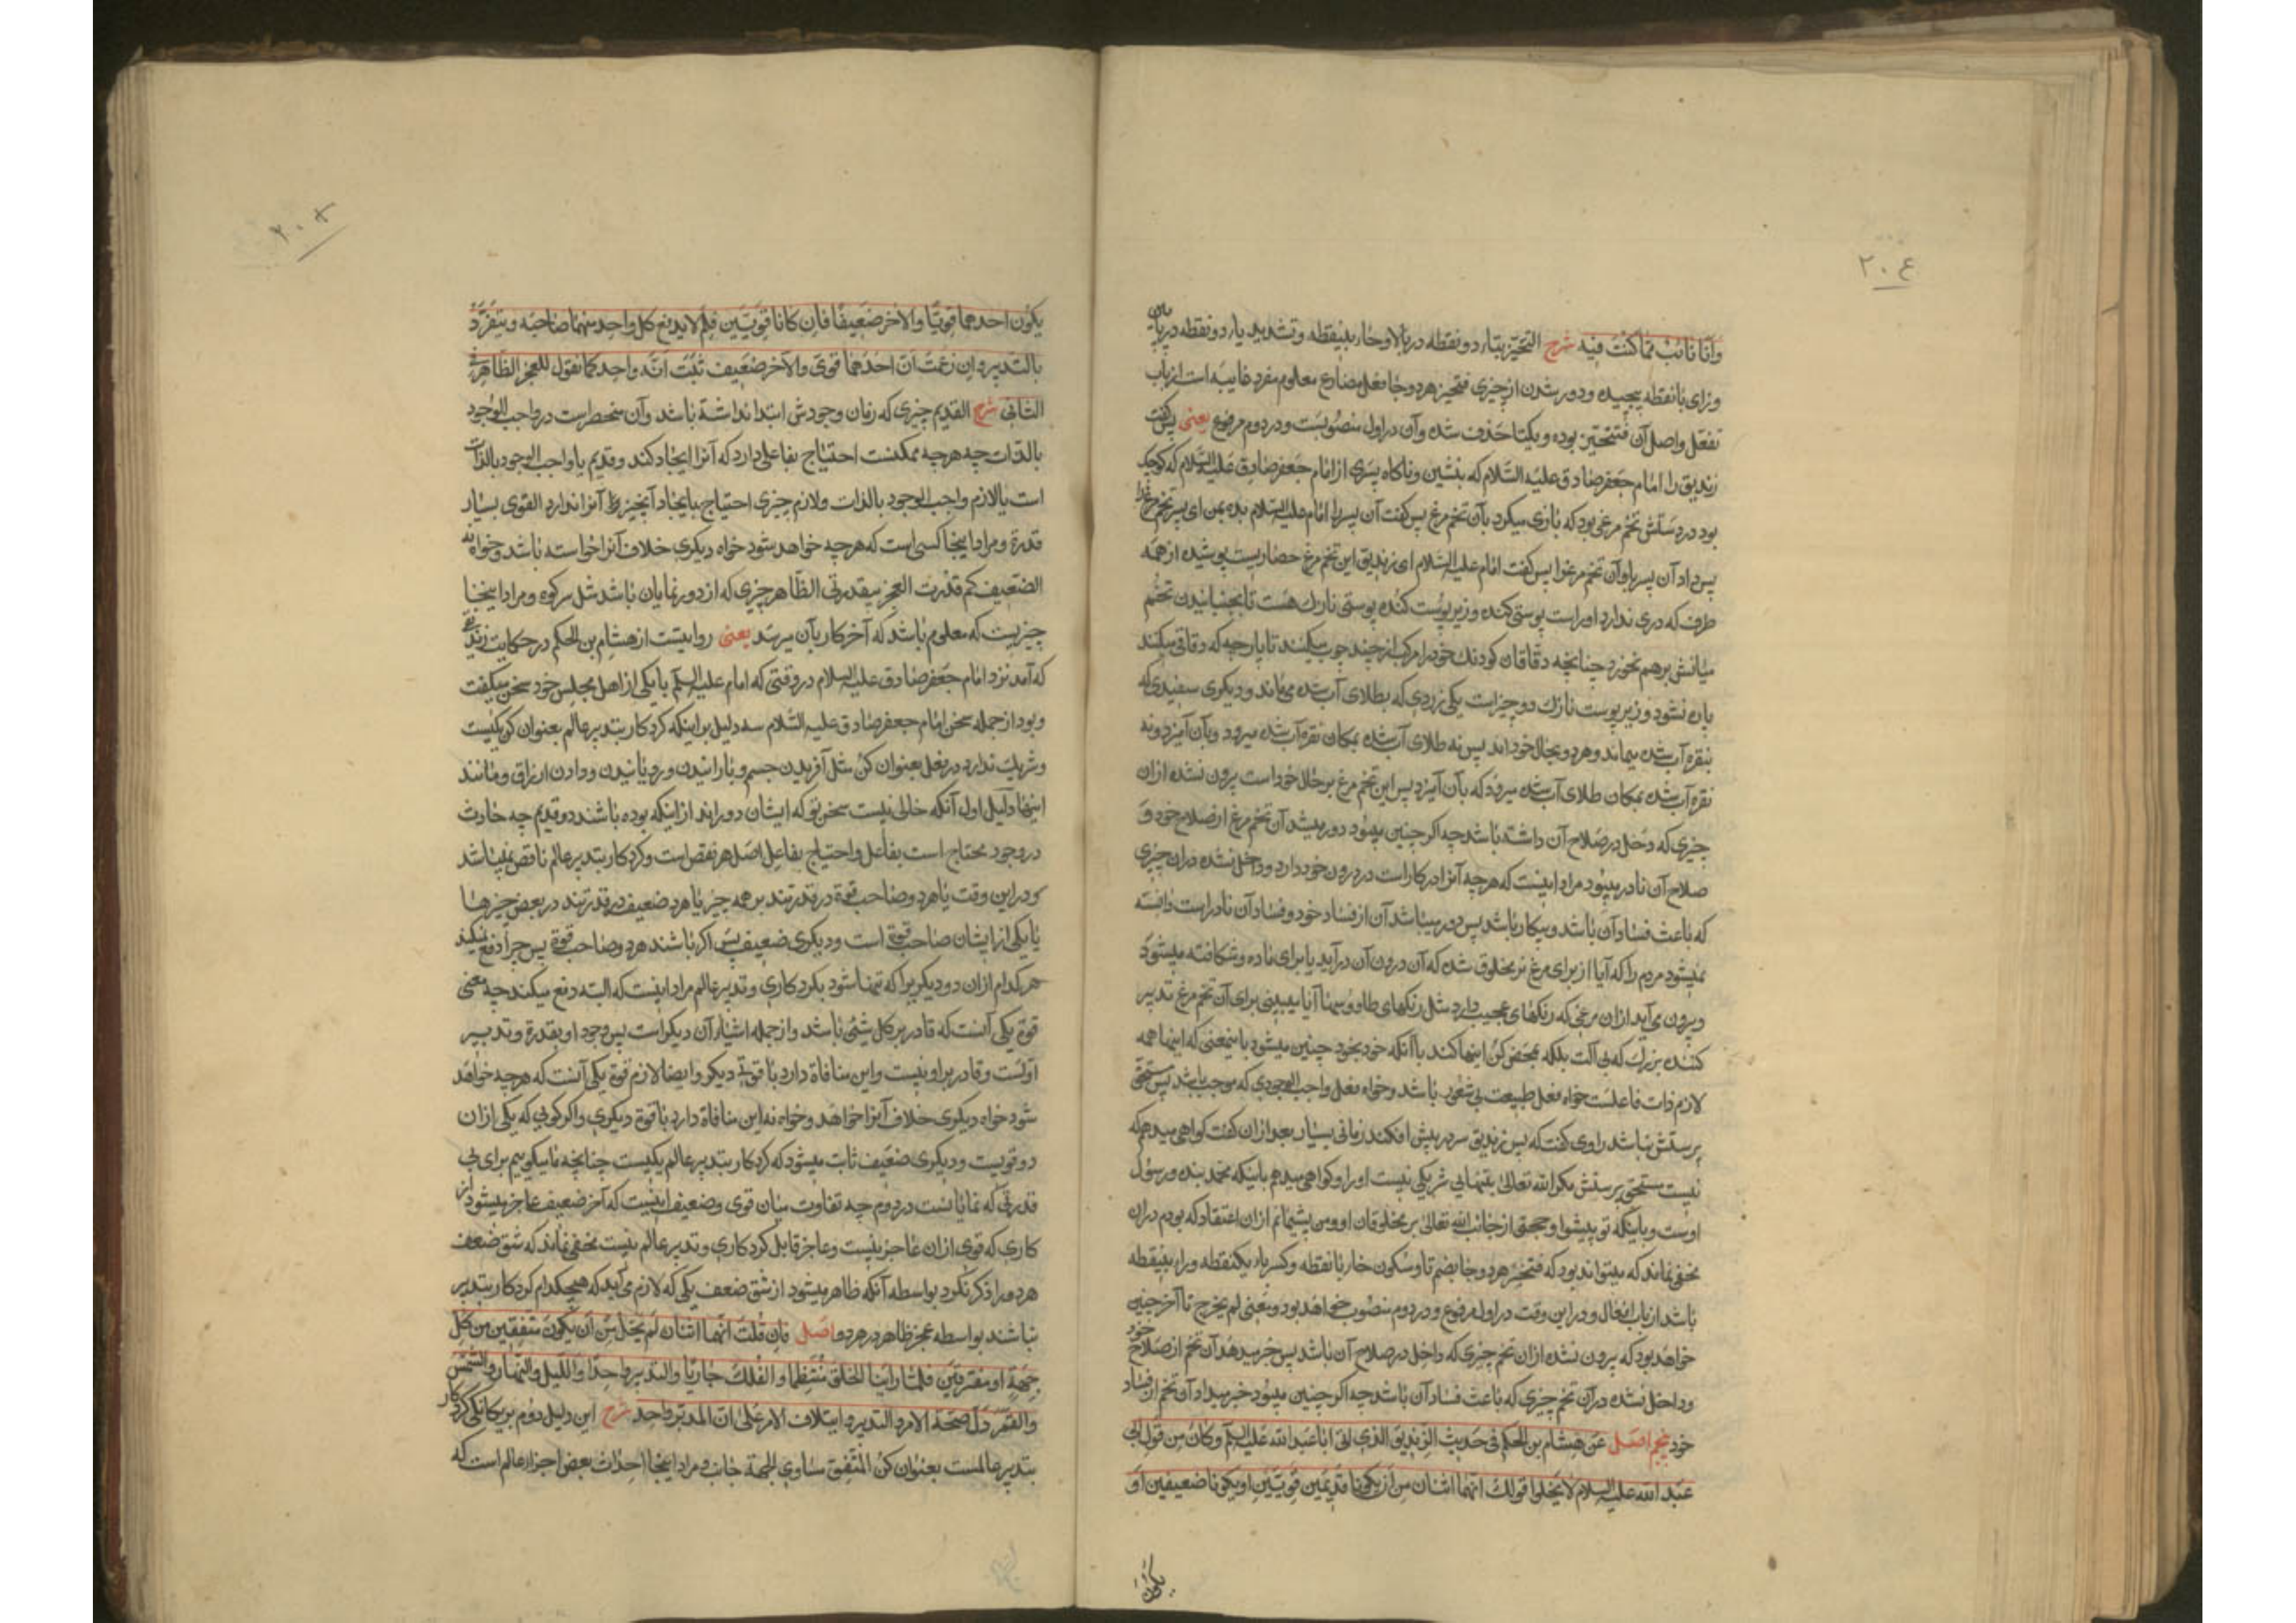 ۲۰۴
وأنا تائب مما كنت فيه شرح التحیز بتاء دو نقطه در بالا وحاء بینقطه وتشدید یاء دو نقطه در پایین
وزای بانقطه پیچیده ودور شدن از چیزی فتحیز هر دو جا فعل مضارع معلوم مفرد غایبه است از باب
تفعل واصل آن فتتحیز بوده ویکتا حذف شده وآن در اول منصوبست ودر دوم مرفوع یعنی پس گفت
زندیق را امام جعفر صادق علیه السلام که بنشین وناگاه پسری از امام جعفر صادق علیه السلام که کوچک
بود در دستش تخم مرغی بود که بازی میکرد بآن تخم مرغ پس گفت آن پسر را امام علیه السلام بده بمن ای پسر تخم مرغ را
پس داد آن پسر باو آن تخم مرغ را پس گفت امام علیه السلام ای زندیق این تخم مرغ حصاریست پوشیده از همه
طرف که دری ندارد او راست پوستی کنده وزیر پوست کنده پوستی نازک هست تا بجنبانیدن تخم
میانش بر هم نخورد چنانچه دقاقان کودنک خود را مرکب از چند چوب میکنند تا پارچه که دقاقی میکنند
پاره نشود وزیر پوست نازک دو چیز است یکی زردی که بطلای آب شده میماند ودیگری سفیدی که
بنقره آب شده میماند وهر دو بحال خوداند پس نه طلای آب شده بمکان نقره آب شده میرود وبآن آمیزد ونه
نقره آب شده بمکان طلای آب شده میرود که بآن آمیزد پس این تخم مرغ بر حال خود است بیرون نشده از آن
چیزی که دخل در صلاح آن داشته باشد چه اگر چنین میبود دور میشد آن تخم مرغ از صلاح خود و
صلاح آن نادر میبود مراد اینست که هر چه آنرا در کار است در درون خود دارد وداخل نشده در آن چیزی
که باعث فساد آن باشد وبیکار باشد پس دور میباشد آن از فساد خود وفساد آن نادر است دانسته
نمیشود مردم را که آیا از برای مرغ نر مخلوق شده که آن درون آن درآید یا برای ماده وشکافته میشود
وبیرون می آید از آن مرغی که رنگهای عجیب دارد مثل رنگهای طاووسها آیا میبینی برای آن تخم مرغ تدبیر
کننده بزرگ که بی آلت بلکه بمحض کن اینها کند یا آنکه خود بخود چنین میشود باینمعنی که اینها همه
لازم ذات فاعلست خواه فعل طبیعت بی شعور باشد وخواه فعل واجب الوجودی که موجب باشد پس مستحق
پرستش نباشد راوی گفت که پس زندیق سر در پیش افکند زمانی بسیار بعد از آن گفت گواهی میدهم که
نیست مستحق پرستش مگر الله تعالی بتنهایی شریکی نیست او را وگواهی میدهم باینکه محمد بنده ورسول
اوست وباینکه تو پیشوا وحجتی از جانب الله تعالی بر مخلوقان او ومن پشیمانم از آن اعتقاد که بودم در آن
مخفی نماند که میتواند بود که فتخبر هر دو جا بضم تا وسکون خاء بانقطه وکسر باء یکنقطه وراء بینقطه
باشد از باب افعال ودر این وقت در اول مرفوع ودر دوم منصوب خواهد بود ومعنی لم یخرج تا آخر چنین
خواهد بود که بیرون نشده از آن تخم چیزی که داخل در صلاح آن باشد پس خبر میدهد آن تخم از صلاح خود
وداخل نشده در آن تخم چیزی که باعث فساد آن باشد چه اگر چنین میبود خبر میداد آن تخم از فساد
خود پنجم اصل عن هشام بن الحکم فی حدیث الزندیق الذی اتی ابا عبد الله علیه السلم وکان من قول ابی
عبد الله علیه السلام لا یخلوا قولک انهما اثنان من ان یکونا قدیمین قویین او یکونا ضعیفین او
یکون
۲۰۵
یکون احدهما قویا والاخر ضعیفا فان کانا قویین فلم لا یدفع کل واحد منهما صاحبه ویتفرد
بالتدبیر وان زعمت ان احدهما قوی والاخر ضعیف ثبت انه واحد کما نقول للعجز الظاهر فی
الثانی شرح القدیم چیزی که زمان وجودش ابتدا نداشته باشد وآن منحصر است در واجب الوجود
بالذات چه هر چه ممکنست احتیاج بفاعلی دارد که آنرا ایجاد کند وقدیم یا واجب الوجود بالذات
است یا لازم واجب الوجود بالذات ولازم چیزی احتیاج بایجاد آنچیز آنرا ندارد القوی بسیار
قدرة ومراد اینجا کسی است که هر چه خواهد شود خواه دیگری خلاف آنرا خواسته باشد وخواه نه
الضعیف کم قدرت العجز بیقدرتی الظاهر چیزی که از دور نمایان باشد مثل سر کوه ومراد اینجا
چیزیست که معلوم باشد که آخر کار بآن میرسد یعنی روایتست از هشام بن الحکم در حکایت زندیقی
که آمد نزد امام جعفر صادق علیه السلام در وقتی که امام علیه السلم با یکی از اهل مجلس خود سخن میگفت
وبود از جمله سخن امام جعفر صادق علیه السلام سه دلیل بر اینکه کردکار بتدبیر عالم بعنوان کن یکیست
وشریک ندارد در فعل بعنوان کن مثل آفریدن جسم وبارانیدن ورویانیدن ودادن ارزاق ومانند
اینها دلیل اول آنکه خالی نیست سخن تو که ایشان دواند از اینکه بوده باشند دو قدیم چه حادث
در وجود محتاج است بفاعل واحتیاج بفاعل اصل هر نقص است وکردکار بتدبیر عالم ناقص نمیباشد
ودر این وقت یا هر دو صاحب قوة در قدرتند بر همه چیز یا هر دو ضعیف در قدرتند در بعض چیزها
یا یکی از ایشان صاحب قوة است ودیگری ضعیف پس اگر باشند هر دو صاحب قوة پس چرا دفع نمیکند
هر کدام از آن دو دیگری را که تنها شود بکردکاری وتدبیر عالم مراد اینست که البته دفع میکند چه معنی
قوة یکی آنست که قادر بر کل شئ باشد واز جمله اشیاء آن دیگر است پس وجود او بقدرة وتدبیر
اولست وقادر بر او نیست واین منافاة دارد با قوة دیگر وایضا لازم قوة یکی آنست که هر چه خواهد
شود خواه دیگری خلاف آنرا خواهد وخواه نه این منافاة دارد با قوة دیگری واگر گویی که یکی از آن
دو قویست ودیگری ضعیف ثابت میشود که کردکار بتدبیر عالم یکیست چنانچه ما میگوییم برای بی
قدرتی که نمایانست در دوم چه تفاوت میان قوی وضعیف اینست که آخر ضعیف عاجز میشود از
کاری که قوی از آن عاجز نیست وعاجز قابل کردکاری وتدبیر عالم نیست مخفی نماند که شق ضعف
هر دو را ذکر نکرد بواسطه آنکه ظاهر میشود از شق ضعف یکی که لازم می آید که هیچکدام کردکار بتدبیر
نباشند بواسطه عجز ظاهر در هر دو اصل فان قلت انهما اثنان لم یخل من ان یکون متفقین من کل
جهة او مفترقین فلما راینا الخلق منتظما والفلک جاریا والتدبیر واحدا واللیل والنهار والشمس
والقمر دل صحة الامر والتدبیر وایتلاف الامر علی ان المدبر واحد شرح این دلیل دوم بر یگانگی کردکار
بتدبیر عالمست بعنوان کن المتفق مساوی الجهة جانب ومراد اینجا احداث بعض اجزاء عالم است که